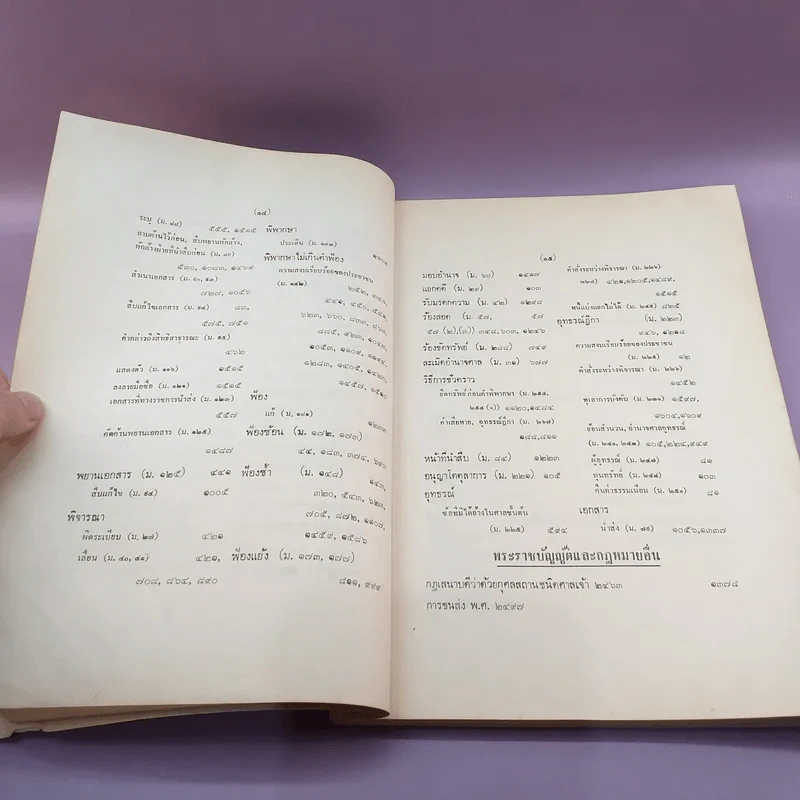 (๑๔)
ระบุ (ม. ๘๘)
๕๕๕, ๑๕๑๕
ถามค้านไว้ก่อน, สืบพยานหักล้าง,
หักล้างฝ่ายที่นำสืบก่อน (ม. ๘๙)
๕๓๐, ๑๐๘๓, ๑๔๖๙
สำเนาเอกสาร (ม. ๙๐, ๙๓)
๗๒๗, ๑๐๕๖
สืบแก้ไขเอกสาร (ม. ๙๔) ๘๓,
๕๗๕, ๗๕๑
คำกล่าวถึงสิทธิสาธารณะ (ม. ๙๕)
๔๖๒
แสดงตัว (ม. ๑๐๖) ๑๕๑๕
ลงลายมือชื่อ (ม. ๑๒๑) ๑๕๑๕
เอกสารที่ทางราชการนำส่ง (ม. ๑๒๓)
๕๕๗
คัดค้านพยานเอกสาร (ม. ๑๒๕)
๑๔๘๗
พยานเอกสาร (ม. ๑๒๕) ๔๔๑
สืบแก้ไข (ม. ๙๔) ๑๐๐๕
พิจารณา
ผิดระเบียบ (ม. ๒๗) ๔๒๑
เลื่อน (ม. ๔๐, ๔๑) ๔๒๑,
๗๐๘, ๘๖๔, ๘๙๐
พิพากษา
ประเด็น (ม. ๑๘๓)
พิพากษาไม่เกินคำฟ้อง
ความสงบเรียบร้อยของประชาชน
(ม. ๑๔๒) ๒๕๒, ๓๙๘,
๔๔๑, ๔๕๐, ๕๕๕,
๖๒๓, ๖๖๐, ๘๓๓, ๘๖๐,
๘๘๕, ๙๒๓,
๑๐๕๓, ๑๑๐๙,
๑๒๘๓, ๑๔๐๕, ๑๔๒๐,
๑๔๕๗, ๑๕๑๐
ฟ้อง
แก้ (ม. ๑๘๑) ๑๒๓๓
ฟ้องซ้อน (ม. ๑๗๒, ๑๗๓)
๔๔, ๑๘๓, ๓๗๔, ๖๙๐
ฟ้องซ้ำ (ม. ๑๔๘)
๓๒๐, ๕๔๓, ๖๒๓,
๗๐๕, ๘๗๒, ๑๑๐๗,
๑๔๕๙, ๑๕๘๖
ฟ้องแย้ง (ม. ๑๗๓, ๑๗๗)
๘๑๑, ๙๙๙
(๑๕)
มอบอำนาจ (ม. ๖๐) ๑๔๑๗
แยกคดี (ม. ๒๙) ๑๐๓
รับมรดกความ (ม. ๔๒) ๑๒๙๘
ร้องสอด (ม. ๕๗, ๕๗
๕๗ (๒), (๓)) ๓๔๘, ๖๐๓, ๑๒๔๖
ร้องขัดทรัพย์ (ม. ๒๘๘) ๗๔๙
ละเมิดอำนาจศาล (ม. ๓๑) ๖๗๗
วิธีการชั่วคราว
ยึดทรัพย์ก่อนคำพิพากษา (ม. ๒๕๔,
๒๕๔ (๑)) ๑๑๒๐, ๑๔๘๔
ค่าเสียหาย, อุทธรณ์ฎีกา (ม. ๒๖๗)
๑๘๘, ๘๑๑
หน้าที่นำสืบ (ม. ๘๔) ๑๒๒๓
อนุญาโตตุลาการ (ม. ๒๒๑) ๑๐๕
อุทธรณ์
ข้อที่มิได้อ้างในศาลชั้นต้น
(ม. ๒๒๕) ๕๙๔
คำสั่งระหว่างพิจารณา (ม. ๒๒๖
๒๒๗) ๔๒๑, ๑๒๐๕, ๑๔๘๙,
๑๕๑๕
หนี้แบ่งแยกไม่ได้ (ม. ๒๔๕) ๘๒๕
อุทธรณ์ฎีกา (ม. ๒๒๓)
๙๔๖, ๑๒๑๘
ความสงบเรียบร้อยของประชาชน
(ม. ๒๒๕) ๑๒
คำสั่งระหว่างพิจารณา (ม. ๒๒๖)
๑๔๕๒
ทุเลาการบังคับ (ม. ๒๓๑) ๑๕๙๗,
๑๖๐๔, ๑๖๐๙
ย้อนสำนวน, อำนาจศาลอุทธรณ์
(ม. ๒๔๐, ๒๔๓) ๑๐๕, ๒๒๔, ๙๔๙
ผู้อุทธรณ์ ๘๑
ทุนทรัพย์ (ม. ๒๔๘) ๑๐๓
คืนค่าธรรมเนียม (ม. ๒๕๑) ๘๑
เอกสาร
นำส่ง (ม. ๗๙) ๑๐๕๖, ๑๓๓๗
พระราชบัญญัติและกฎหมายอื่น
กฎเสนาบดีว่าด้วยกุศลสถานชนิดศาลเจ้า ๒๔๖๓ ๑๓๗๘
การขนส่ง พ.ศ. ๒๔๙๗